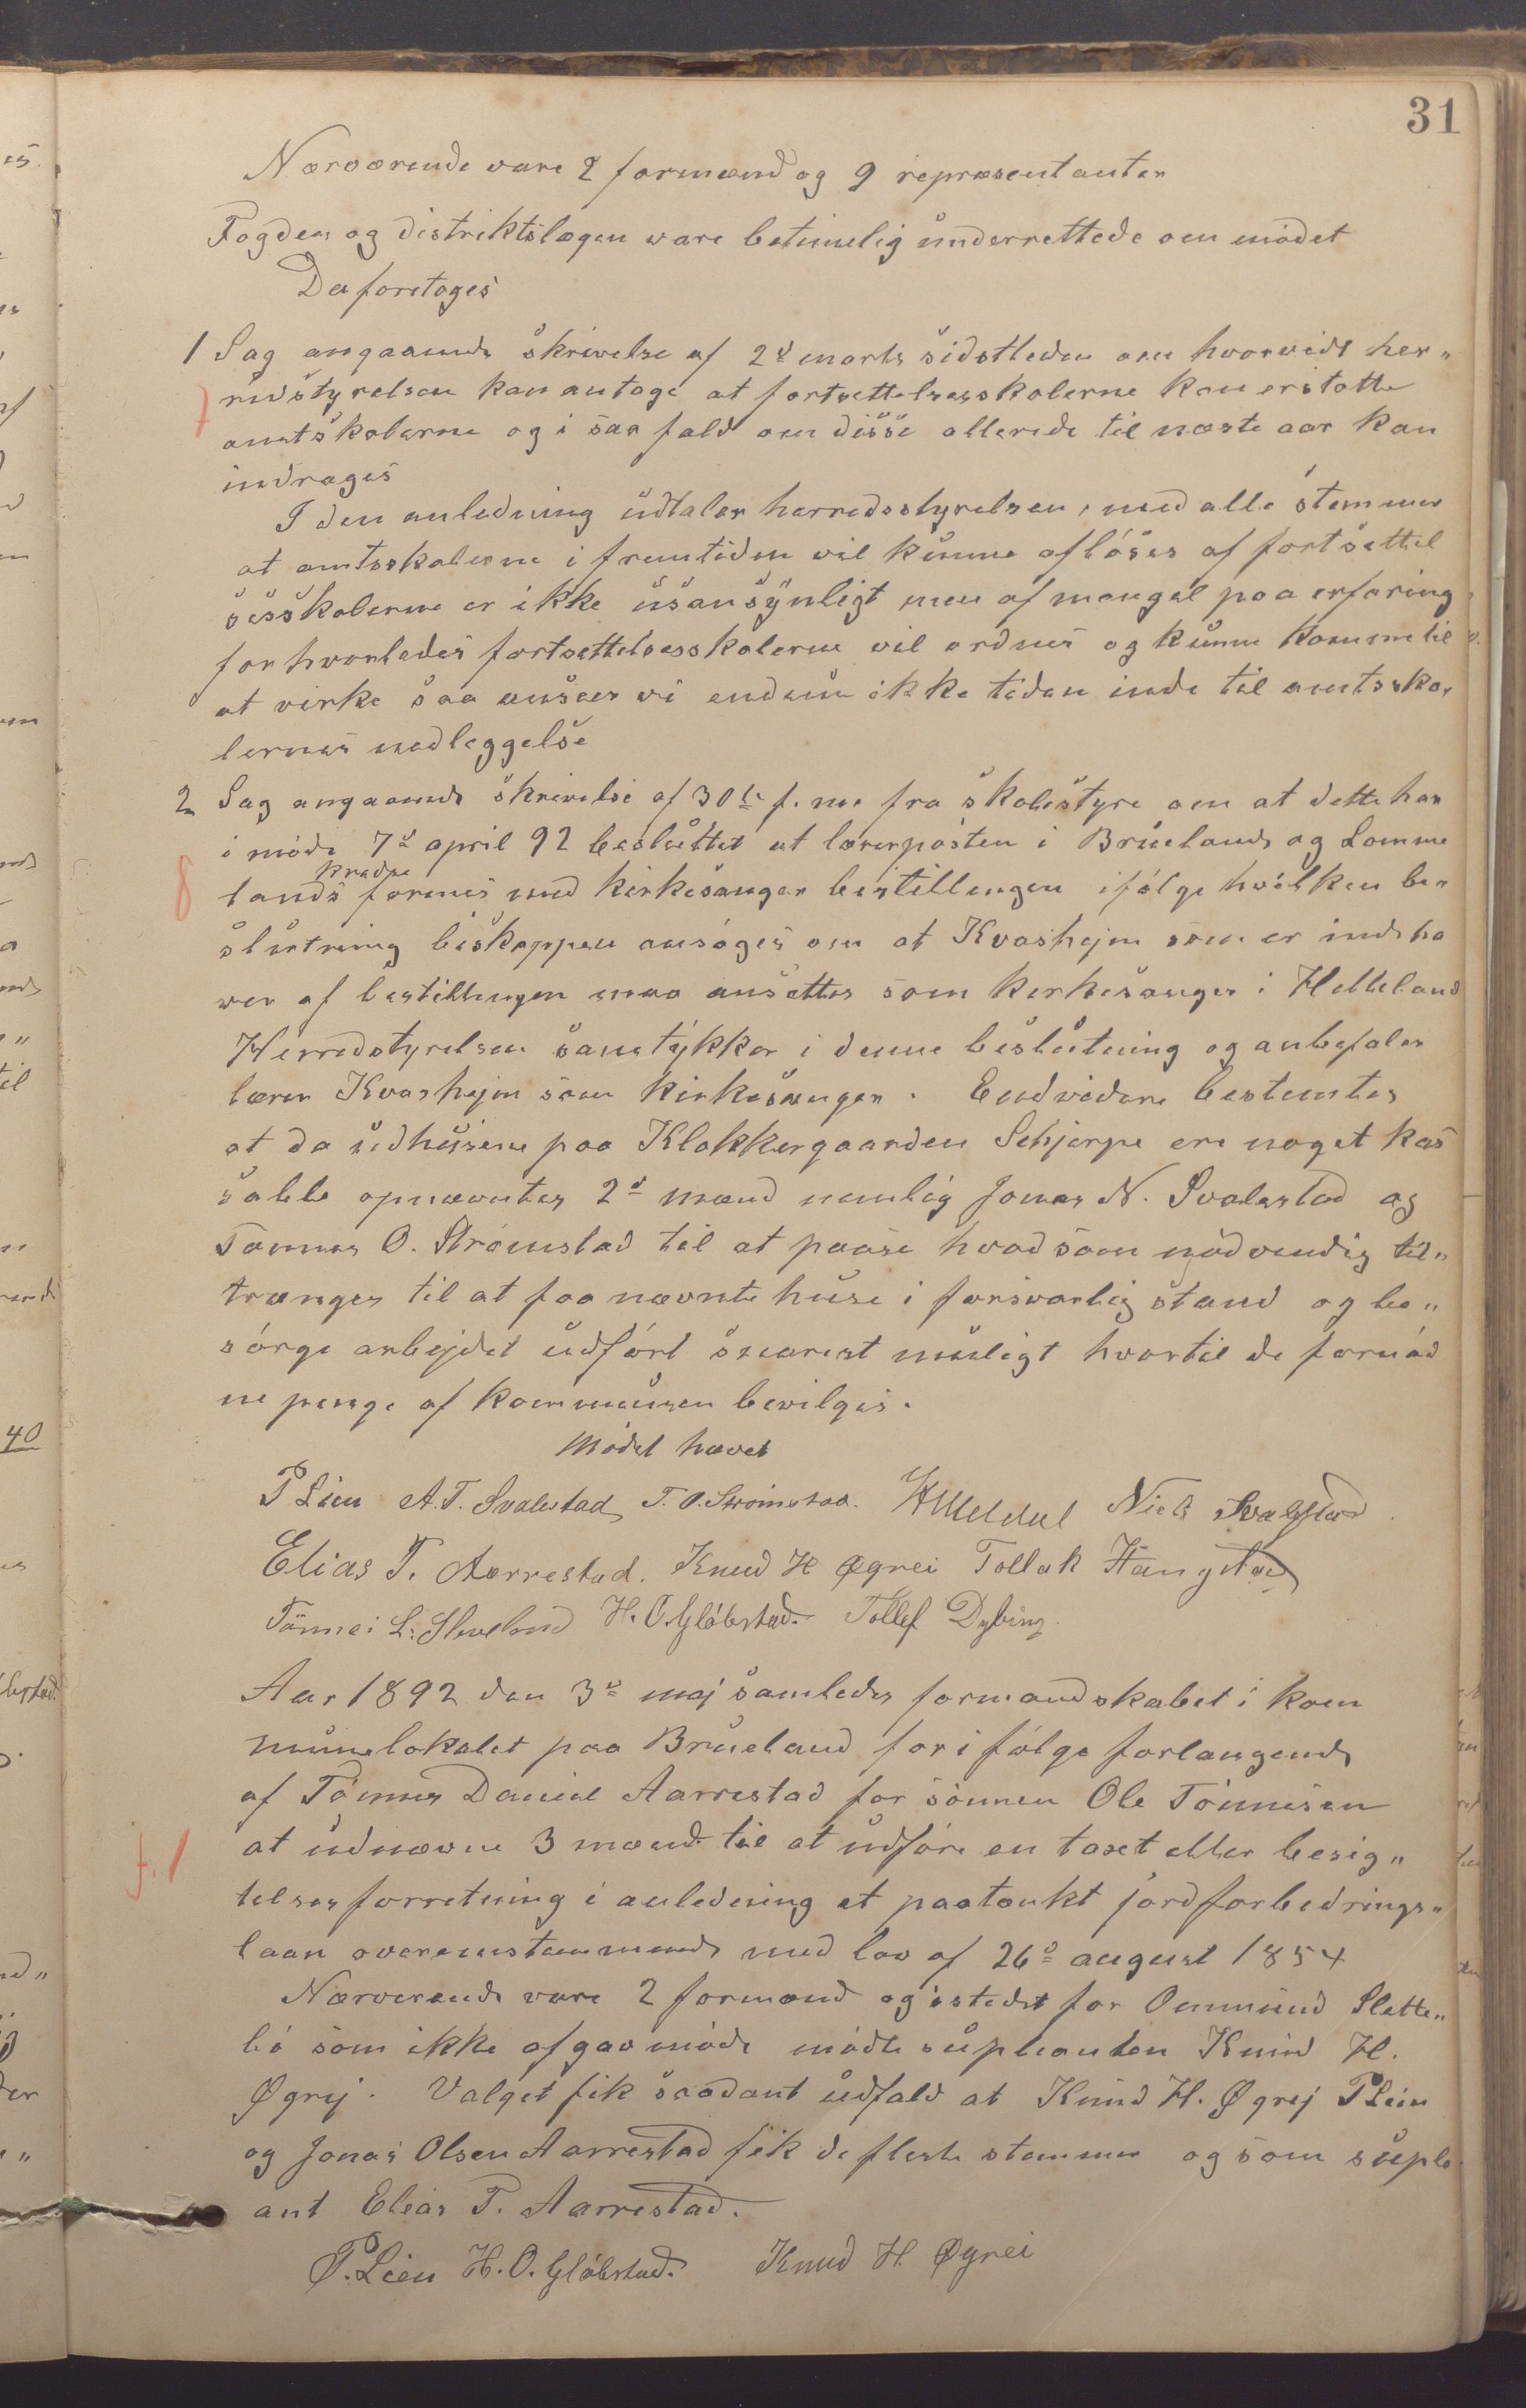 31
Nærværende vare 2 formænd og 9 repræsentanter
Fogden og distriktslægen vare betimelig underrettede om mödet
Da foretoges
1 Sag angaaende skrivelse af 2d marts sidstleden om hvorvidt her„
redstyrelsen kan antage at fortsettelsesskolerne kan erstatte
7
amtskolerne og i saa fald om disse allerede til næste aar kan
indrages
I den anledning udtaler herredsstyrelsen, med alle stemmer
at amtsskolerne i fremtiden vil kunne aflöses af fortsettel
sesskolerne er ikke usansynligt men af mangel paa erfaring
for hvorledes fortsettelsesskolerne vil ordnes og kunne komme til
at virke saa ansees vi endnu ikke tiden inde til amtssko„
lernes nedleggelse
2 Sag angaaende skrivelse af 30te f. m. fra skolestyre om at dette har
i möde 7d april 92 besluttet at lærerposten i Brueland og Lomme
kredse
8 lands forenes med kirkesanger bestillingen ifölge hvilken be„
slutning biskoppen ansöges om at Kvashejm som er indeha
ver af bestillingen maa ansettes som kirkesanger i Helleland
Herredstyrelsen samtykker i denne beslutning og anbefaler
lærer Kvashejm som kirkesanger. Endvidere bestemtes
at da udhusene paa Klokkergaarden Schjerpe ere noget kas
sable opnævntes 2d mænd nemlig Jonas N. Svalestad og
Tönnes O. Strömstad til at paase hvad som nödvendig til„
trænges til at faa nævnte huse i forsvarlig stand og be„
sörge arbejdet udfört snarest muligt hvortil de fornöd
ne penge af kommunen bevilges.
Mödet hævet
P Lien A. T. Svalestad T. O. Strömstad. Niels Svalestad
Elias T. Aarrestad. Knud H Øgrei Tollak Haugstad
Tönnes L. Sleveland H. O. Glöbstad. Tollef Dybing.
Aar 1892 den 3d maj samledes formandskabet i kom
munelokalet paa Brueland for i fölge forlangende
af Tönnes Daniel Aarrestad for sönnen Ole Tönnesen
at udnævne 3 mænd til at udföre en taxt eller besig„
f. 1
telses forretning i anledning et paatænkt jordforbedrings„
laan overenstemmende med lov af 26d august 1854
Nærverende vare 2 formænd og istedet for Ommund Slette„
bö som ikke afgav möde mödte supleanten Knud H.
Øgrej. Valget fik saadant udfald at Knud H. Øgrej P Lien
og Jonas Olsen Aarrestad fik de fleste stemmer og som suple
ant Elias T. Aarrestad.
P. Lien H. O. Glöbstad. Knud H. Øgrei